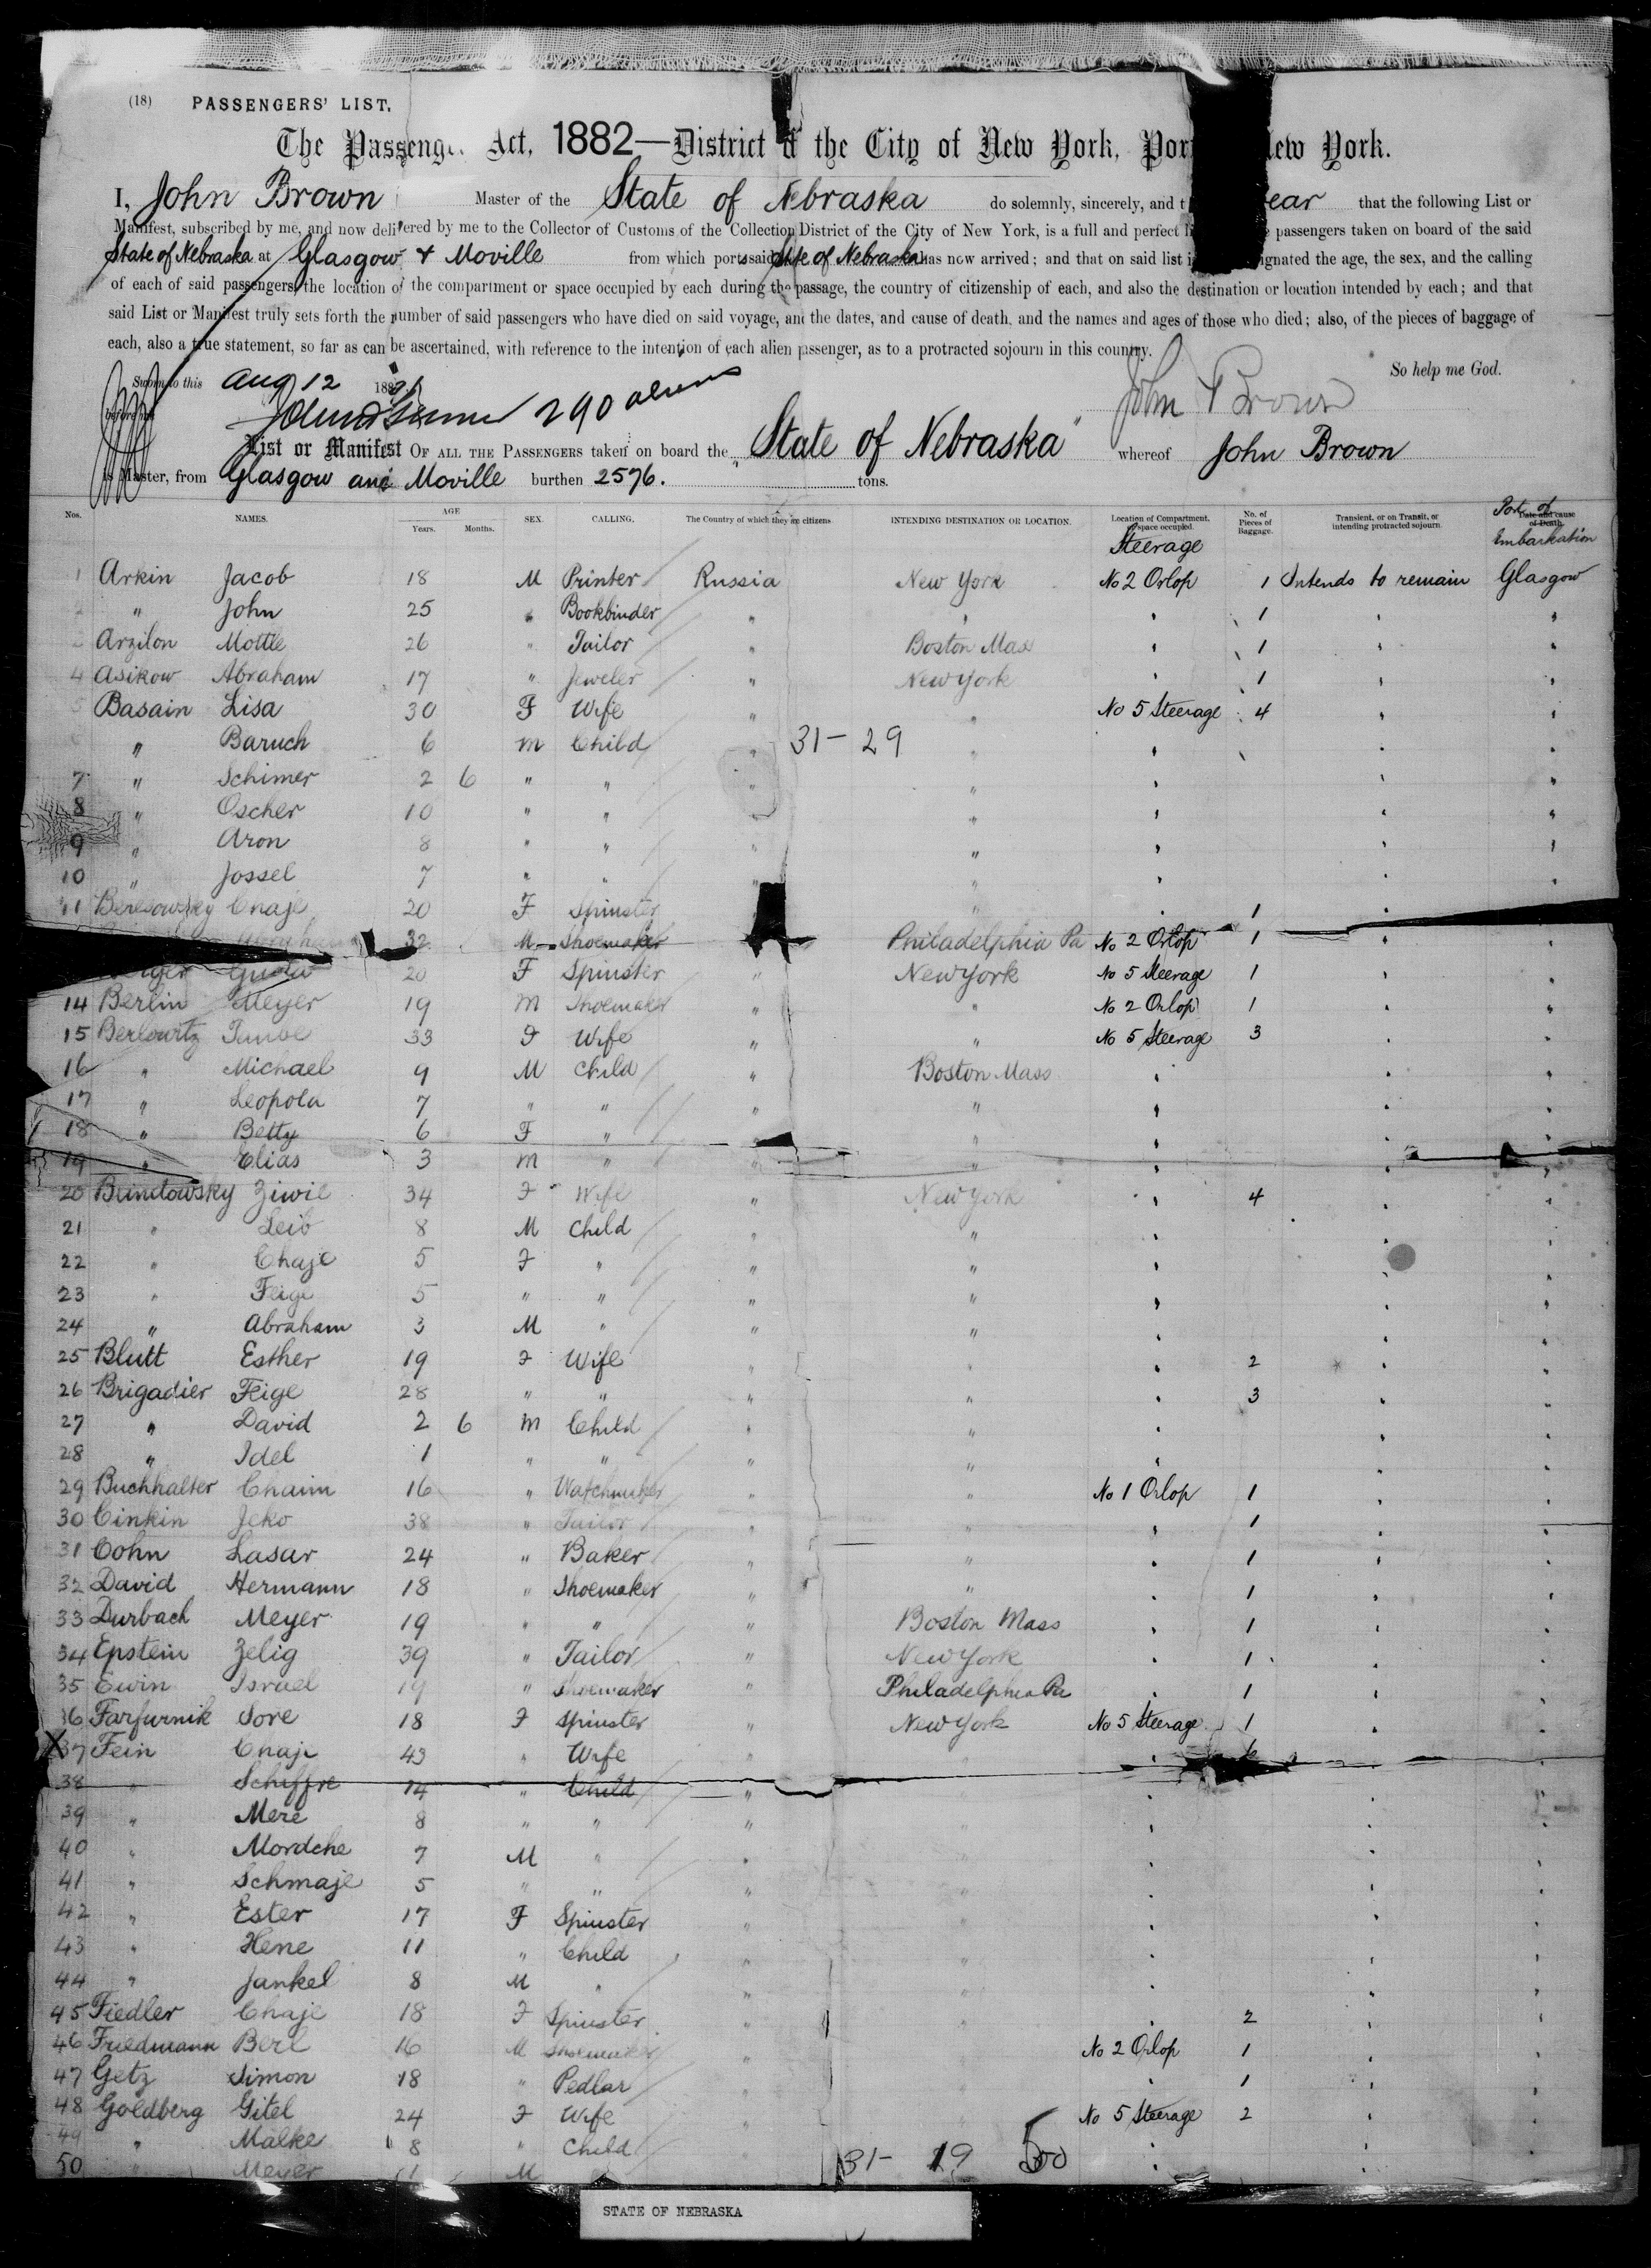 (18) PASSENGERS' LIST.
The Passenge Act, 1882—District of the City of New York, Por ew York.
I, John Brown Master of the State of Nebraska do solemnly, sincerely, and t ear that the following List or
Manifest, subscribed by me, and now delivered by me to the Collector of Customs of the Collection District of the City of New York, is a full and perfect passengers taken on board of the said
State of Nebraska at Glasgow & Moville from which ports said State of Nebraska has now arrived; and that on said list i ignated the age, the sex, and the calling
of each of said passengers, the location of the compartment or space occupied by each during the passage, the country of citizenship of each, and also the destination or location intended by each; and that
said List or Manifest truly sets forth the number of said passengers who have died on said voyage, and the dates, and cause of death, and the names and ages of those who died; also, of the pieces of baggage of
each, also a true statement, so far as can be ascertained, with reference to the intention of each alien passenger, as to a protracted sojourn in this country.
So help me God.
Sworn to this Aug 12 188 John Brown
before me 290 aliens
List or Manifest OF ALL THE PASSENGERS taken on board the "State of Nebraska" whereof John Brown
is Master, from Glasgow and Moville burthen 2576. tons.
Nos. NAMES. AGE Years. Months. SEX. CALLING. The Country of which they are citizens INTENDING DESTINATION OR LOCATION. Location of Compartment, space occupied. No. of Pieces of Baggage. Transient, or on Transit, or intending protracted sojourn. Date and cause of Death Port of Embarkation
Steerage
1 Arkin Jacob 18 M Printer Russia New York No 2 Orlop 1 Intends to remain Glasgow
" John 25 " Bookbinder " " " 1 " "
Arzilon Mottle 26 " Tailor " Boston Mass " 1 " "
4 Asikow Abraham 17 " Jeweler " New York " 1 " "
5 Basain Lisa 30 F Wife " " No 5 Steerage 4 " "
" Baruch 6 M Child " 31-29 " " " "
7 " Schimer 2 6 " " " " " " "
8 " Oscher 10 " " " " " " "
9 " Aron 8 " " " " " " "
10 " Jossel 7 " " " " " " "
11 Beresowsky Chaje 20 F Spinster " " 1 "
Abraham 32 M Shoemaker Philadelphia Pa No 2 Orlop 1 " "
20 F Spinster " New York No 5 Steerage 1 " "
14 Berlin Meyer 19 M Shoemaker " " No 2 Orlop 1 " "
15 Berlowitz Taube 33 F Wife " " No 5 Steerage 3 " "
16 " Michael 9 M Child " Boston Mass " " "
17 " Leopold 7 " " " " " " "
18 " Betty 6 F " " " " " "
19 " Elias 3 M " " " " " "
20 Brindowsky Ziwie 34 F Wife " New York " 4 " "
21 " Leib 8 M Child " " " " "
22 " Chaje 5 F " " " " " "
23 " Feige 5 " " " " " " "
24 " Abraham 3 M " " " " " "
25 Blutt Esther 19 F Wife " " " 2 " "
26 Brigadier Feige 28 " " " " " 3 " "
27 " David 2 6 M Child " " " " "
28 " Idel 1 " " " " " " "
29 Buchhalter Chaim 16 " Watchmaker " " No 1 Orlop 1 " "
30 Cinkin Jeko 38 " Tailor " " " 1 " "
31 Cohn Lasar 24 " Baker " " " 1 " "
32 David Hermann 18 " Shoemaker " " " 1 " "
33 Durbach Meyer 19 " " " Boston Mass " 1 " "
34 Epstein Zelig 39 " Tailor " New York " 1 " "
35 Ewin Israel 19 " Shoemaker " Philadelphia Pa " 1 " "
36 Farfurnik Sore 18 F Spinster " New York No 5 Steerage 1 " "
X 37 Fein Chaje 43 " Wife " " 6 "
38 " Schiffre 14 " Child " " " "
39 " Mere 8 " " " " " " "
40 " Mordche 7 M " " " " " "
41 " Schmaje 5 " " " " " " "
42 " Ester 17 F Spinster " " " " "
43 " Hene 11 " Child " " " " "
44 " Jankel 8 M " " " " " "
45 Fiedler Chaje 18 F Spinster " " " 2 " "
46 Friedmann Berl 16 M Shoemaker " " No 2 Orlop 1 " "
47 Getz Simon 18 " Pedlar " " " 1 " "
48 Goldberg Gitel 24 F Wife " " No 5 Steerage 2 " "
49 " Malke 8 " Child " " " "
50 " Meyer 1 M 31-19 50 " " "
STATE OF NEBRASKA